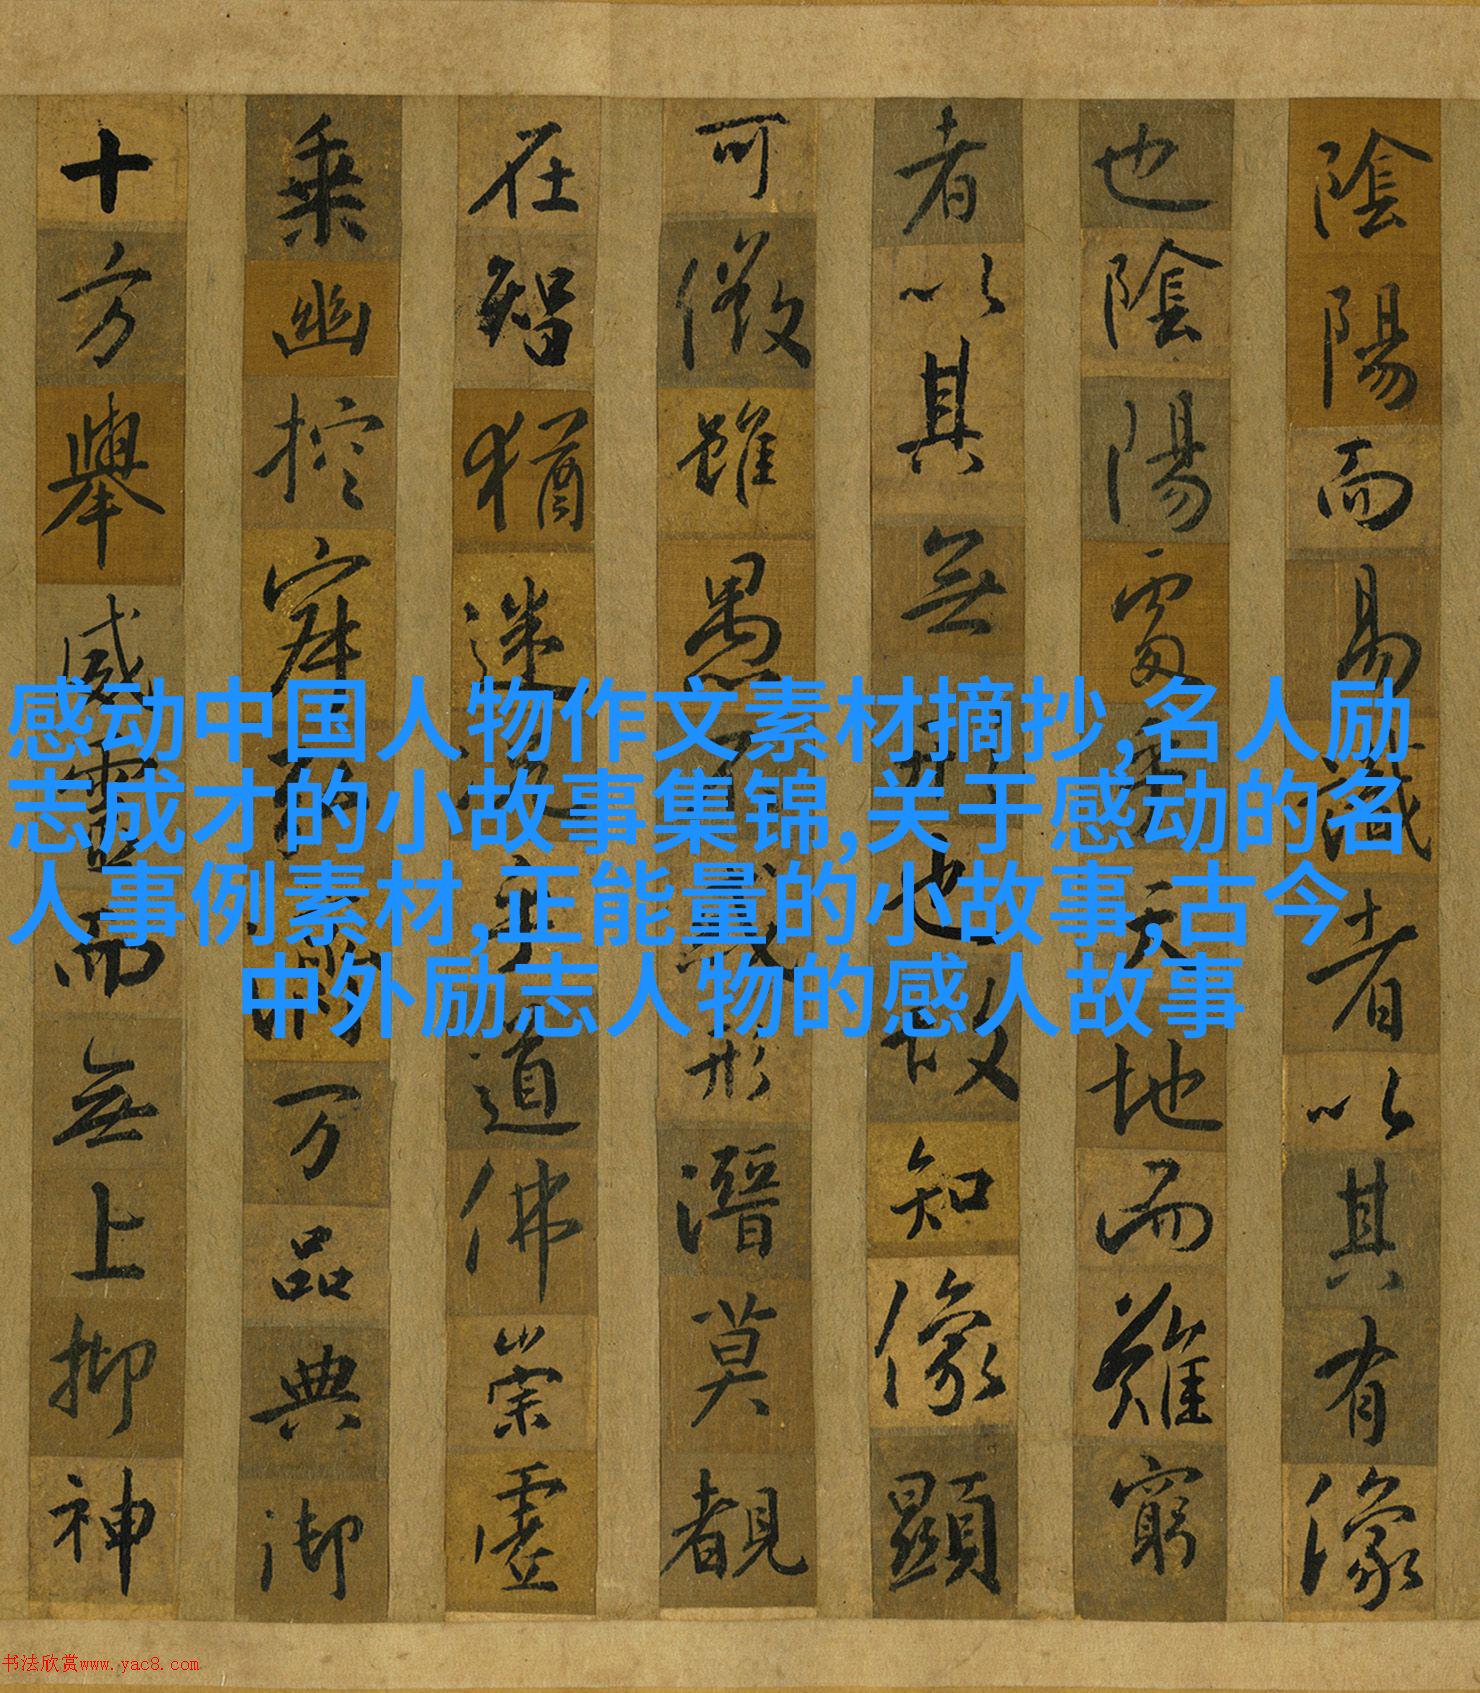 感动中国人物作文素材摘抄,名人励
志成才的小故事集锦,关于感动的名
人事例素材,正能量的小故事,古今
中外励志人物的感人故事
陰陽而易識者以其有像
也陰陽處乎天地而難窮
者以其無形也故知像顯
可徵雖愚不惑形潛莫覩
在智猶迷況乎道佛崇虛
乘幽控寂弘濟万品典御
十方舉威靈而無上抑神
书法欣赏www.yac8.com